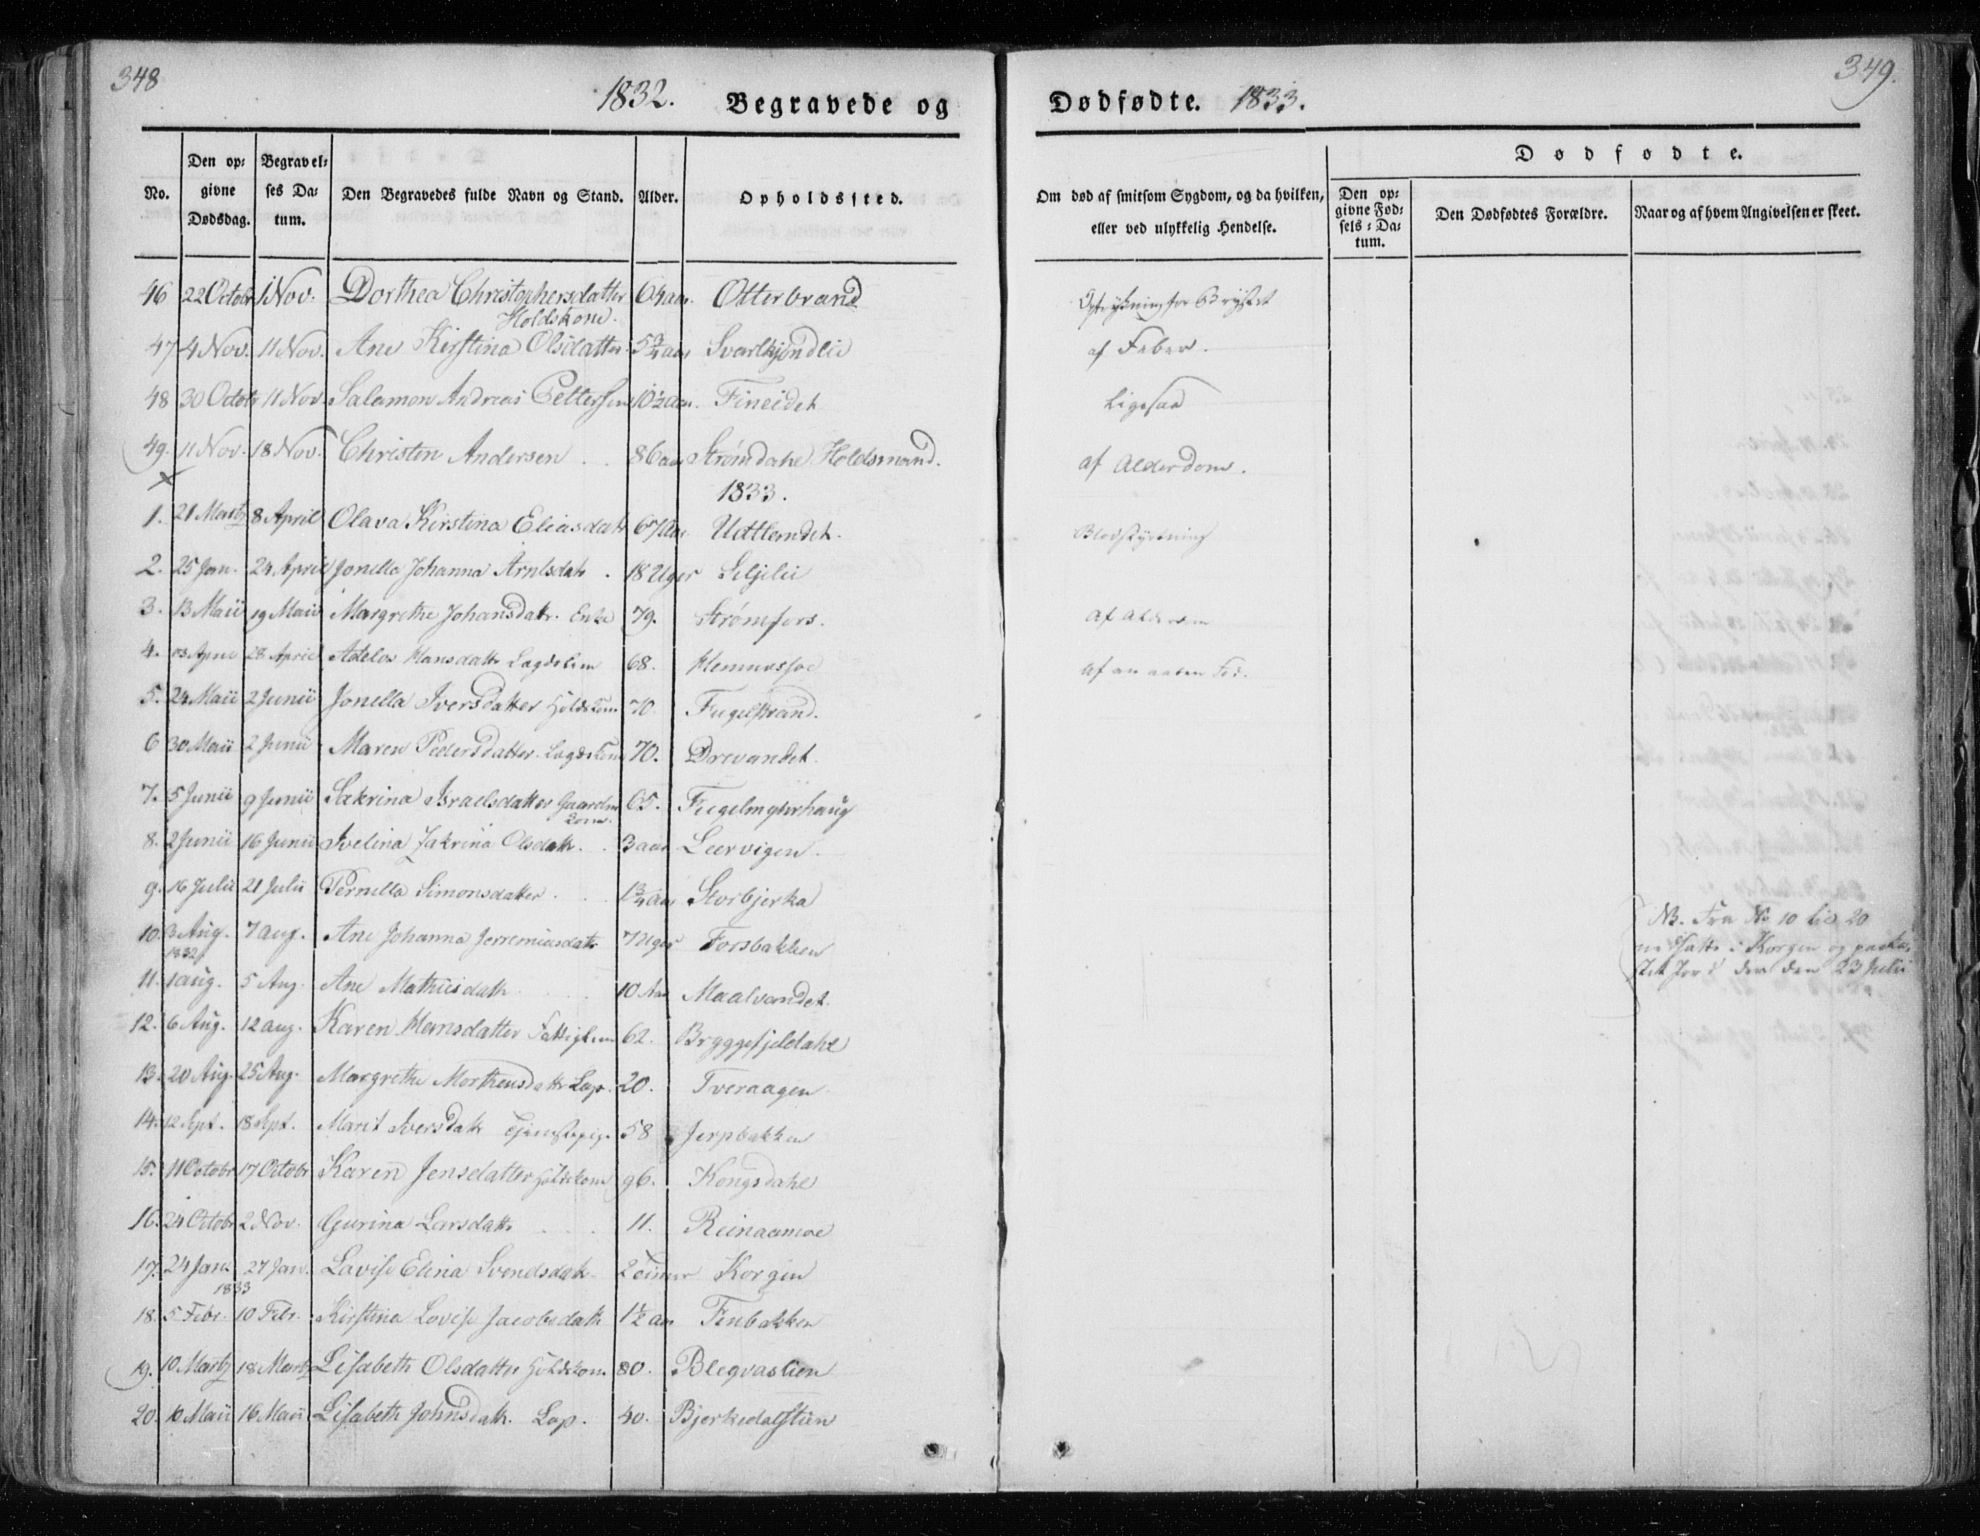 348
1832. Begravede og
No. Den op-givne Dødsdag. Begravel-ses Da-tum. Den Begravedes fulde Navn og Stand. Alder. Opholdssted.
46 22 Octobr 1 Nov. Dorthea Christophersdatter 64 aar. Otterbrand
Holdskone.
47 4 Nov. 11 Nov. Ane Kirstina Olsdatter 5 3/4 aar
48 30 Octobr 11 Nov. Salamon Andreas Pettersen 10 1/2 aar. Fineidet
49. 11 Nov. 18 Nov. Christen Andersen 86 aar Strømdahl Holdsmand.
1833.
1. 21 Martz 8 April Olava Kirstina Eliasdatr 67 Aar. Udtlandet.
2. 25 Jan. 24 April Jonilla Johanna Arntsdatr 18 Uger Seljelii
3. 13 Maii 19 Maii Margrethe Johansdatr. Enke 79. Strømfors.
4. 28 April Adelos Hansdattr 68.
5. 24 Maii 2 Junii Jonella Iversdatter Holdskone 70. Fugelstrand.
6 30 Maii 2 Junii Maren Pedersdatter 70. Drevandet.
7. 5 Junii 9 Junii Sakrina Israelsdatter Gaardm 65. Fugelmyrhaug
kone.
8. 2 Junii 16 Junii Ivelina Zakrina Olsdatr. 3 aar Leervigen.
9. 16 Julii 21 Julii Pernilla Simonsdatter 1 3/4 aar Storbjerka
10. 3 Aug. 7 Aug. Ane Johanna Jerremiasdatr 7 Uger Forsbakken
1832
11. 1 Aug. 5 Aug. Ane Mathiisdatr 10 Aar Maalvandet.
12. 6 Aug. 12 Aug. Karen Hansdatter Fattiglem 62. Bryggefjeldahl
13. 20 Aug. 25 Aug. Margrethe Morthensdattr Lap. 20. Tveraagen
14. 12 Sept. 18 Sept. Marit Iversdatr Tjenstepige 58 Jerpbakken
15. 11 Octobr 17 Octobr Karen Jensdatter Holdskone 96. Kongsdahl
16. 24 Octobr 2 Nov. Gurina Larsdattr 11. Reinaamoe
17. 24 Jan. 27 Jan. Lavise Elina Svendsdatr 2 Timer Korgen
1833
18. 5 Febr. 10 Febr. Kirstina Lovise Jacobsdatr 1 1/2 aar Finbakken
19. 10 Martz 18 Martz Lisabeth Olsdatter Holdskone 80. Blegvaslien
20. 10 Maii 16 Maii Lisabeth Johnsdatr. Lap. 40. Bjerkedalslien
349.
Dødfødte. 1833.
Dødfødte.
Om død af smitsom Sygdom, og da hvilken, eller ved ulykkelig Hendelse. Den op-givne Fød-sels-Da-tum. Den Dødfødtes Forældre. Naar og af hvem Angivelsen er skeet.
for Brystet
af Feber.
Ligesaa
af Alderdom.
Blodstyrtning
af Alderdom
af en aaben
NB. Fra No 10 til 20
nedsatte i Korgen og paakas-
tet Jord der den 23 Julii